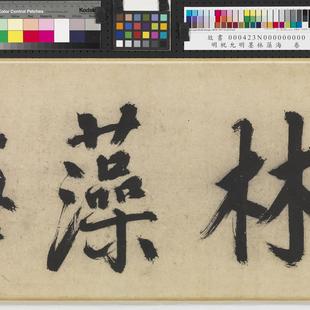 Color Control Patches
Kodak
故書 000423N000000000
明祝允明墨林藻海 卷
林藻